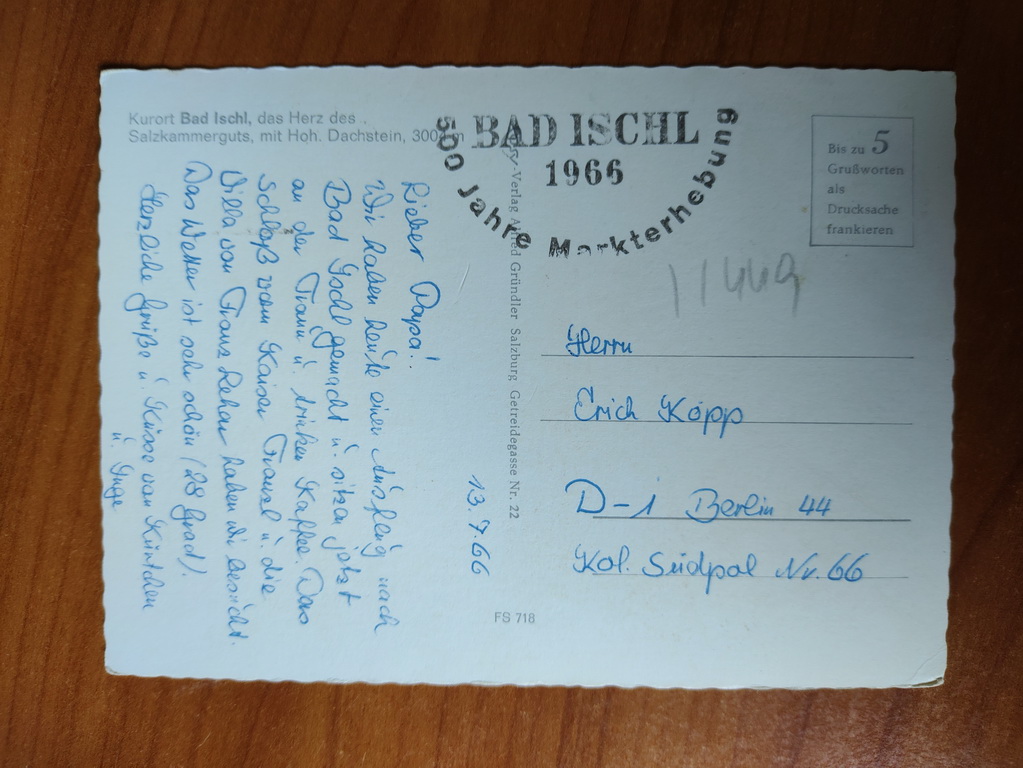 Kurort Bad Ischl, das Herz des
Salzkammerguts, mit Hoh. Dachstein, 300 m
BAD ISCHL
1966
500 Jahre Markterhebung
Bis zu 5
Grußworten
als
Drucksache
frankieren
11449
13.7.66
Lieber Papa!
Wir haben heute einen Ausflug nach
Bad Ischl gemacht u. sitzen jetzt
an der Traun u. trinken Kaffee. Das
Schloß vom Kaiser Franzl u. die
Villa von Franz Lehar haben wir besucht.
Das Wetter ist sehr schön (28 Grad).
Herzliche Grüße u. Küsse von
u. Inge
-Verlag Alfred Gründler Salzburg Getreidegasse Nr. 22
Herrn
Erich Köpp
D-1 Berlin 44
Kol. Südpol Nr. 66
FS 718